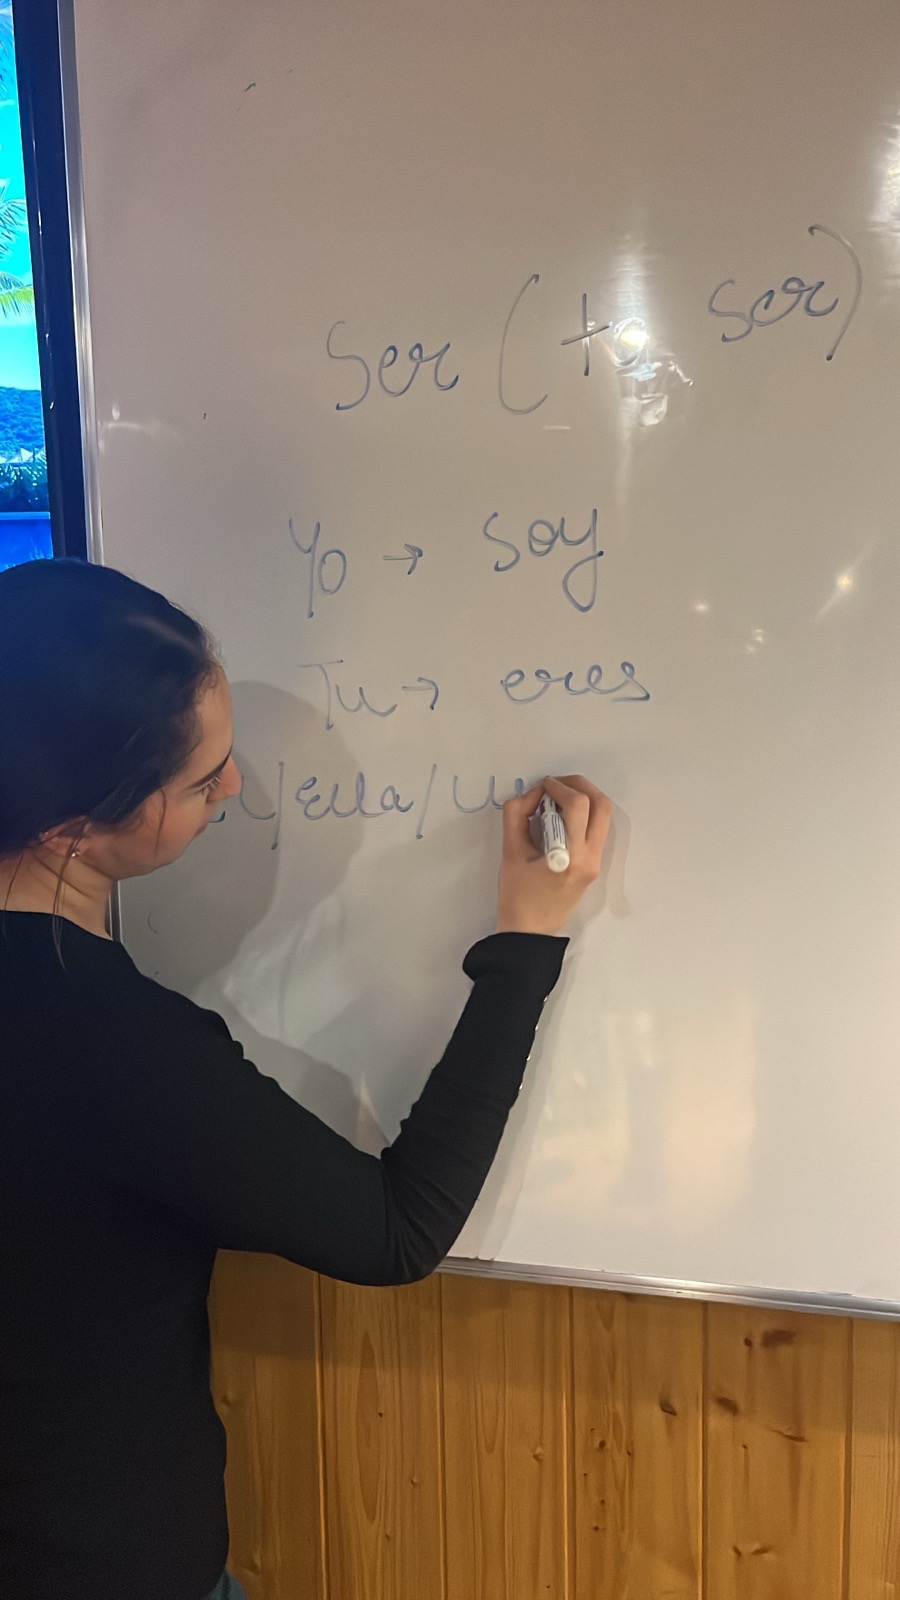 Ser (to ser)
Yo → soy
Tu → eres
/Ella/